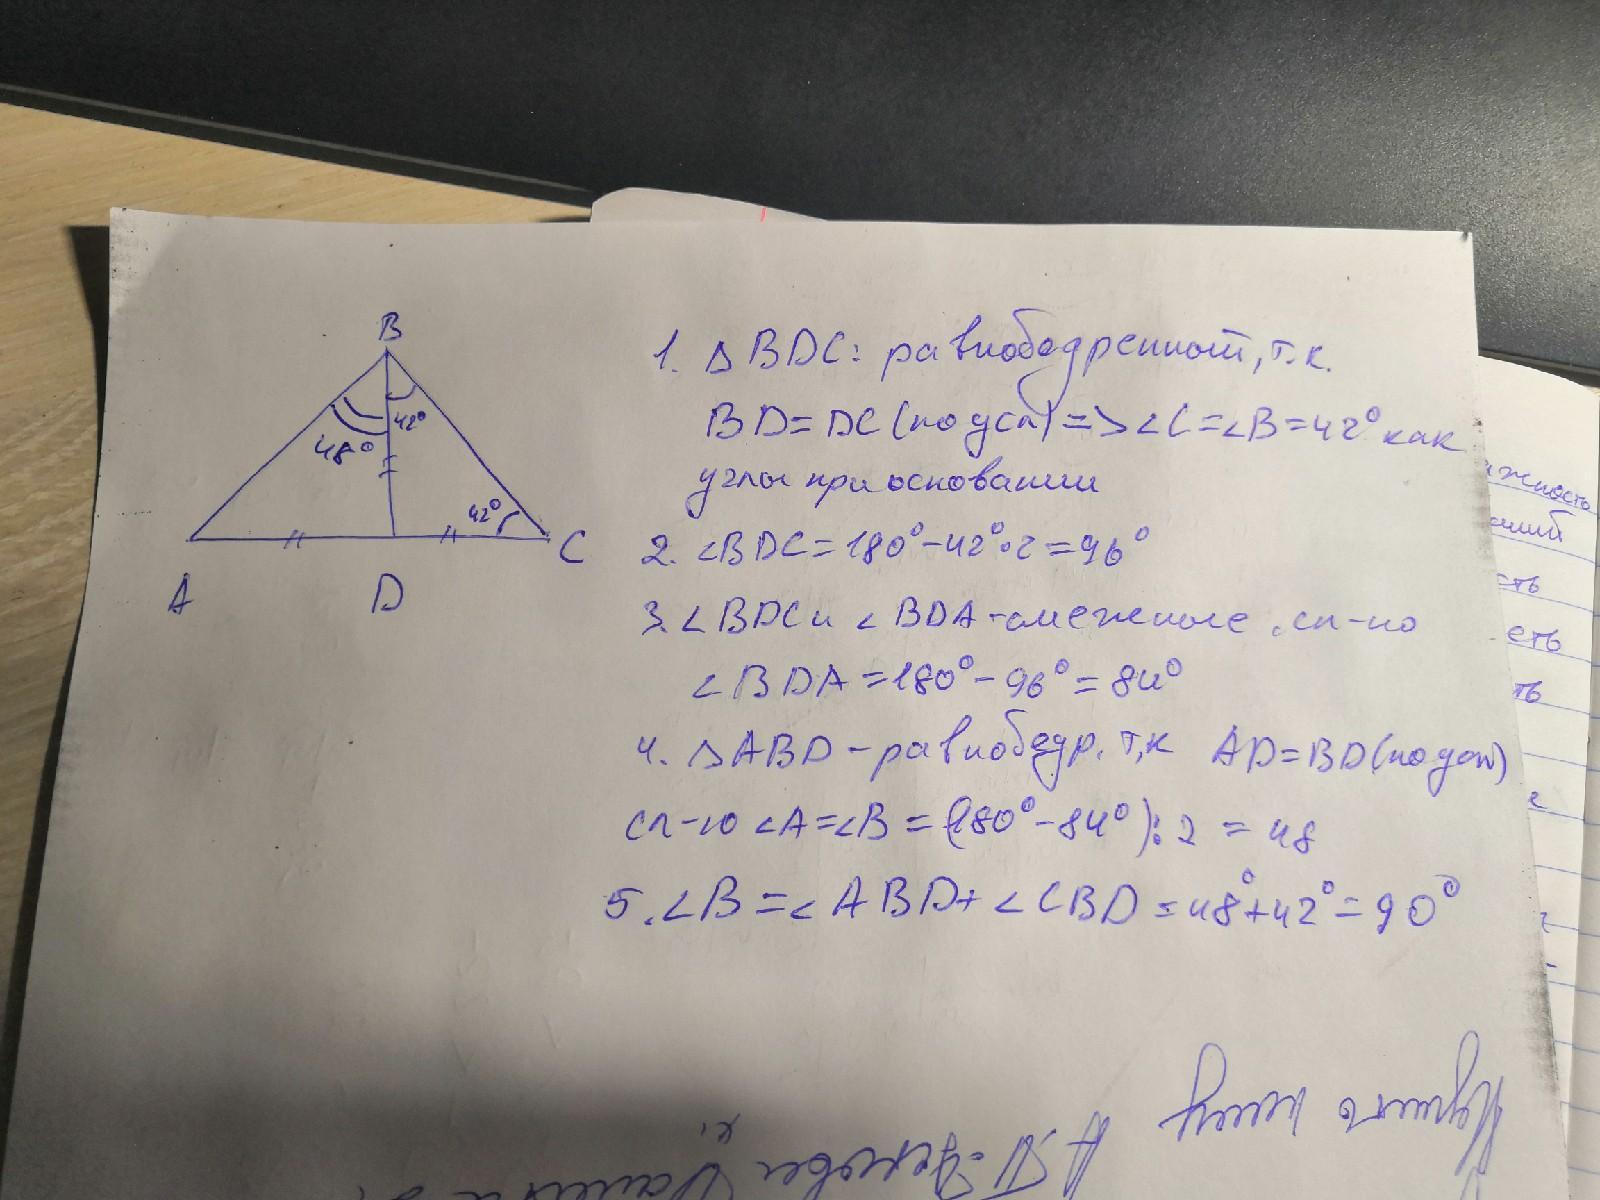 B
42°
48°
42°
A
D
C
1. △BDC: равнобедренный, т.к.
BD=DC(по усл)=>∠C=∠B=42° как
углы при основании
2. ∠BDC=180°-42°·2=96°
3. ∠BDC и ∠BDA-смежные, сл-но
∠BDA=180°-96°=84°
4. △ABD-равнобедр. т,к AD=BD(по усл)
сл-но ∠A=∠B=(180°-84°):2=48
5. ∠B=∠ABD+∠CBD=48°+42°=90°
Купить книгу